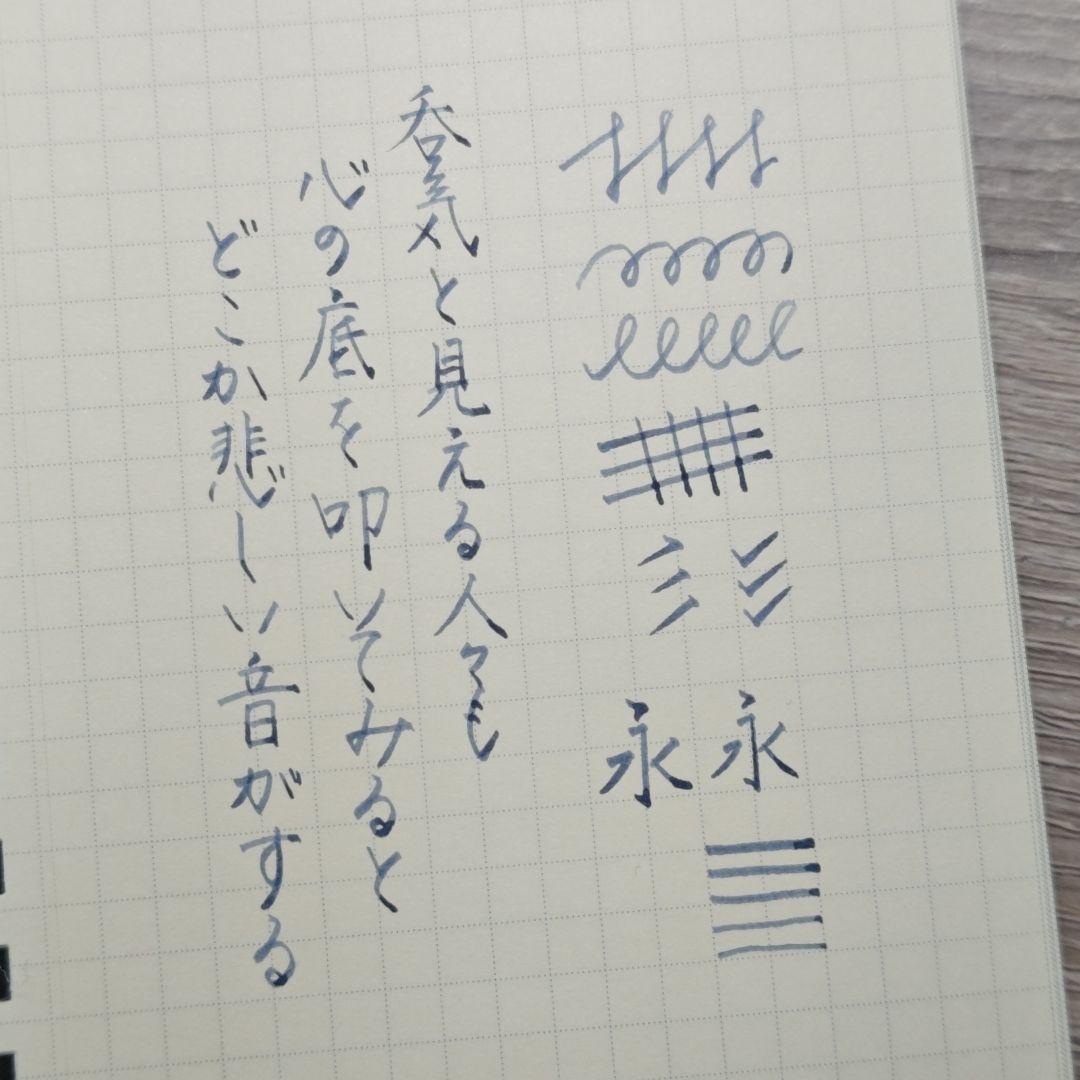 永永
呑気と見える人々も
心の底を叩いてみると
どこか悲しい音がする